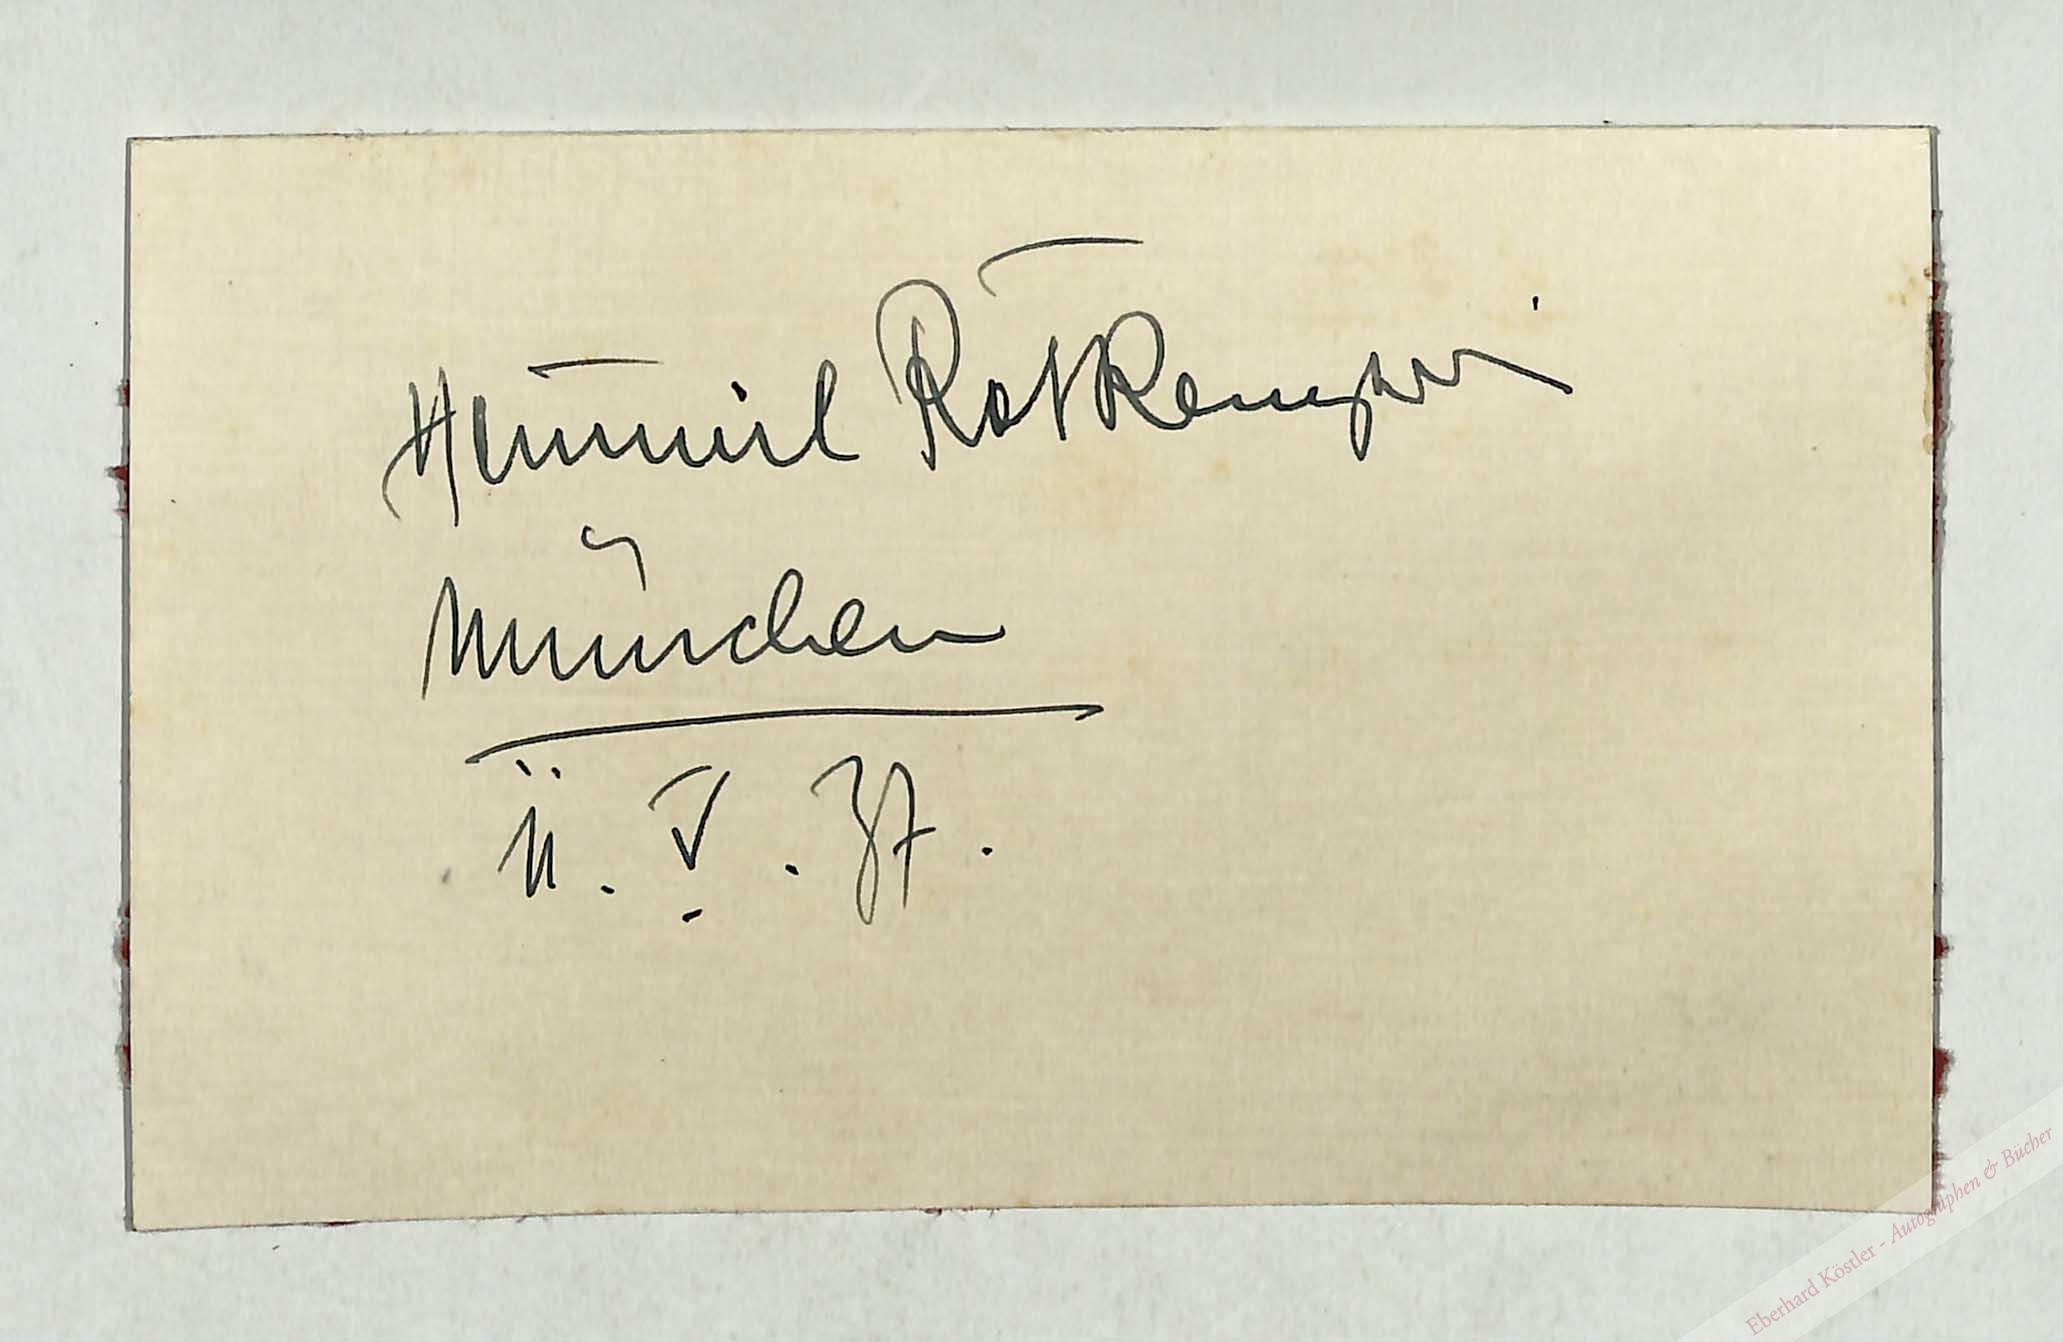 Heinrich Rehkemper
München
11. V. 37.
Eberhard Köstler - Autographen & Bücher